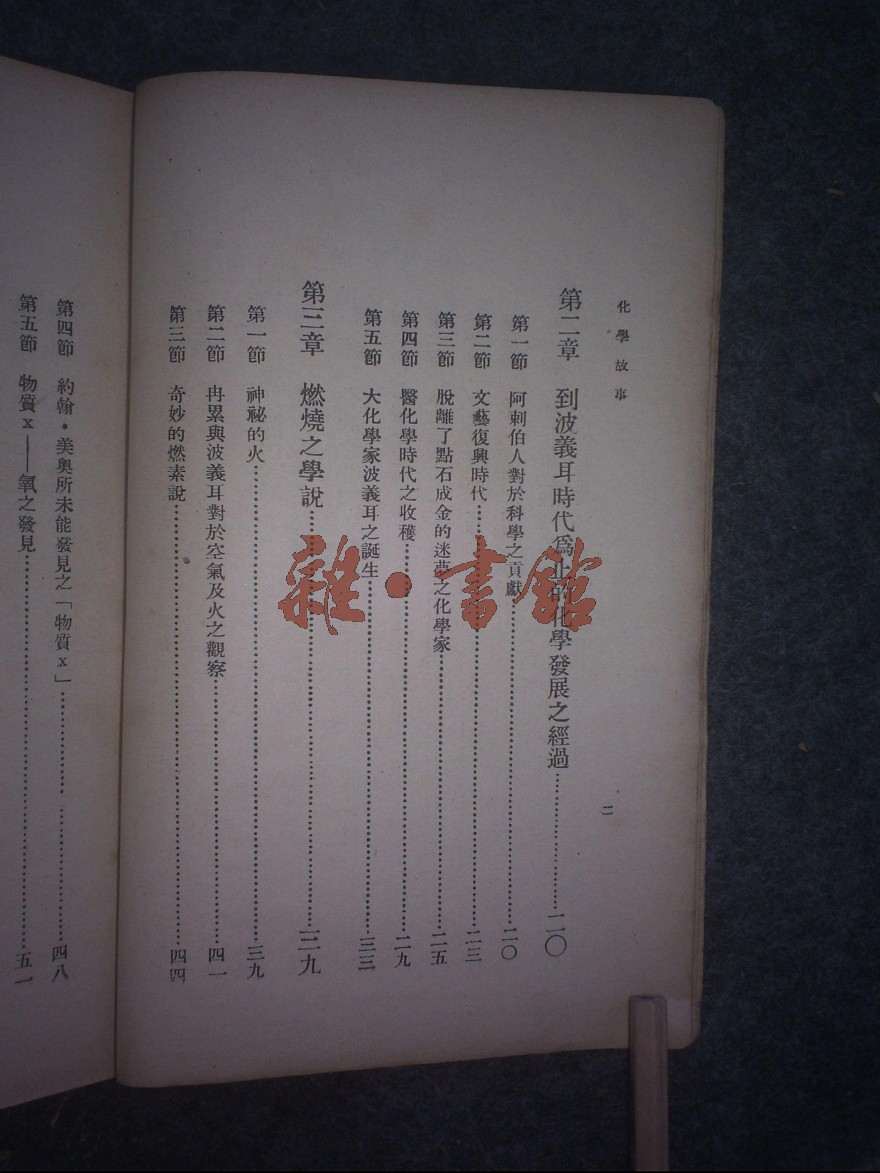 化學故事
二
第二章　到波義耳時代爲止的化學發展之經過……二〇
第一節　阿剌伯人對於科學之貢獻……二〇
第二節　文藝復興時代……二三
第三節　脫離了點石成金的迷夢之化學家……二五
第四節　醫化學時代之收穫……二九
第五節　大化學家波義耳之誕生……三三
第三章　燃燒之學說……三九
第一節　神祕的火……三九
第二節　冉累與波義耳對於空氣及火之觀察……四一
第三節　奇妙的燃素說……四四
第四節　約翰・美奧所未能發見之「物質x」……四八
第五節　物質x——氧之發見……五一
雜・書館